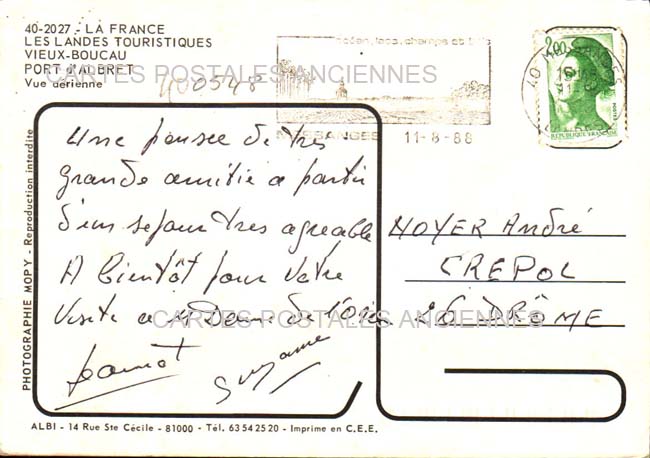 40-2027 - LA FRANCE
LES LANDES TOURISTIQUES
VIEUX-BOUCAU
PORT d'ALBRET
Vue aérienne
CARTES POSTALES ANCIENNES
MESSANGES 11-8-88
2,00
POSTES
REPUBLIQUE FRANÇAISE
PHOTOGRAPHIE MOPY - Reproduction interdite
Une pensee de tres
grande amitie a partir
d'un sejour tres agreable
A bientôt pour votre
visite a
CARTES POSTALES ANCIENNES
Suzanne
NOYER André
CREPOL
26 DRÔME
ALBI - 14 Rue Ste Cécile - 81000 - Tél. 63 54 25 20 - Imprime en C.E.E.